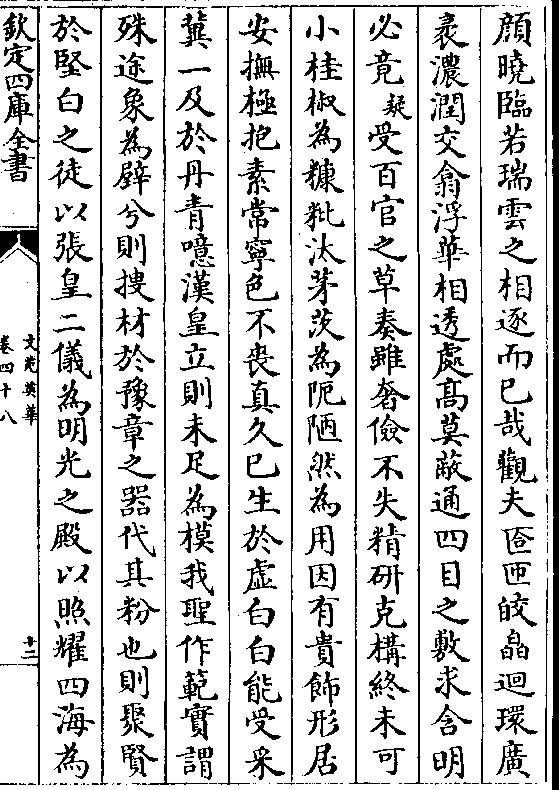 顔曉臨若瑞雲之相逐而已哉觀夫匼匝皎皛迴環廣
袤濃潤交翕浮華相透處高莫蔽通四目之敷求含明
必竟疑受百官之草奏雖奢儉不失精研克構終未可
小桂椒為糠粃汰茅茨為阨陋然為用因有貴飾形居
安撫極抱素常寧色不喪真久已生於虛白白能受采
冀一及於丹青噫漢皇立則未足為模我聖作範實謂
殊途象為辟兮則搜材於豫章之器代其粉也則聚賢
於堅白之徒以張皇二儀為明光之殿以照耀四海為
欽定四庫全書
文苑英華
卷四十八
十二